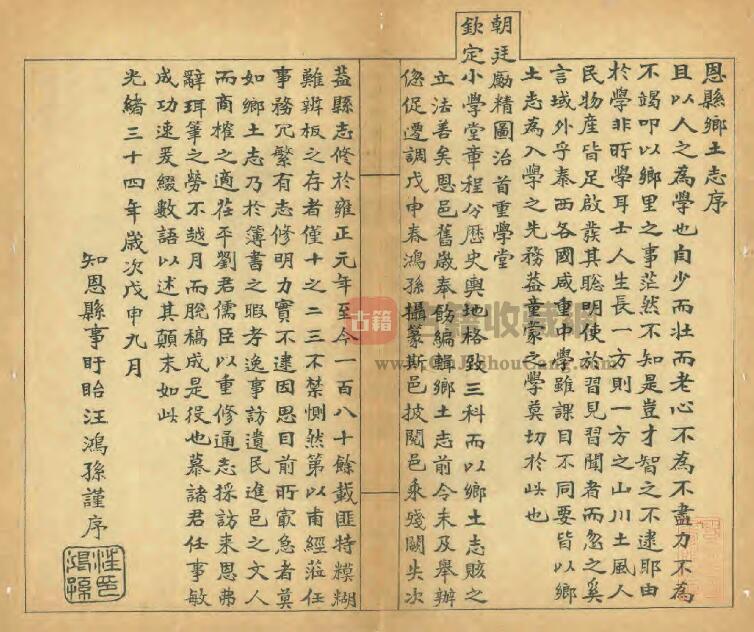 恩縣鄉土志序
且以人之為學也自少而壯而老心不為不盡力不為
不竭叩以鄉里之事茫然不知是豈才智之不逮耶由
於學非所學耳士人生長一方則一方之山川土風人
民物產皆足啟發其聰明使於習見習聞者而忽之奚
言域外乎泰西各國咸重中學雖課目不同要皆以鄉
土志為入學之先務葢童蒙之學莫切於此也
朝廷勵精圖治首重學堂
欽定小學堂章程分歷史輿地格致三科而以鄉土志賅之
立法善矣恩邑舊歲奉飭編輯鄉土志前令未及舉辦
倥促遷調戊申春鴻孫攝篆斯邑披閱邑乘殘闕失次
葢縣志修於雍正元年至今一百八十餘載匪特糢糊
難辨板之存者僅十之二三不禁惻然第以甫經蒞任
事務冗繁有志修明力實不逮因思目前所最急者莫
如鄉土志乃於簿書之暇考逸事訪遺民進邑之文人
而商榷之適茌平劉君儒臣以重修通志採訪來恩弗
辭珥筆之勞不越月而脫稿成是役也慕諸君任事敏
成功速爰綴數語以述其顛末如此
光緒三十四年歲次戊申九月
知恩縣事盱眙汪鴻孫謹序
汪印鴻孫
古籍
www.GuJiShouCang.com